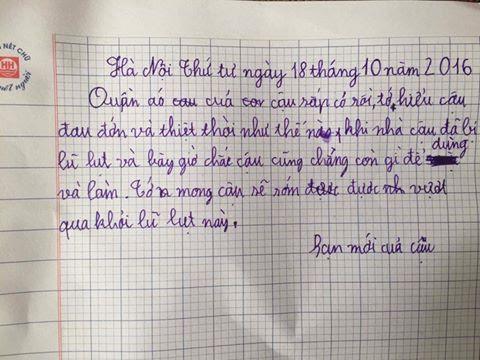 NÉT CHỮ
HH
NGƯỜI
Hà Nội Thứ tư ngày 18 tháng 10 năm 2016
Quần áo cau của cor cậu sắp có rồi, tớ hiểu cậu
đau đớn và thiệt thời như thế nào, khi nhà cậu đã bị
lũ lụt và bây giờ chắc cậu cũng chẳng còn gì để dùng
và làm. Tớ mong cậu sẽ sớm được được nh vượt
qua khỏi lũ lụt này.
Bạn mới của cậu